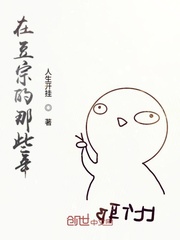 在豆宗的那些年
人生开挂 ◎ 著
创世中文网